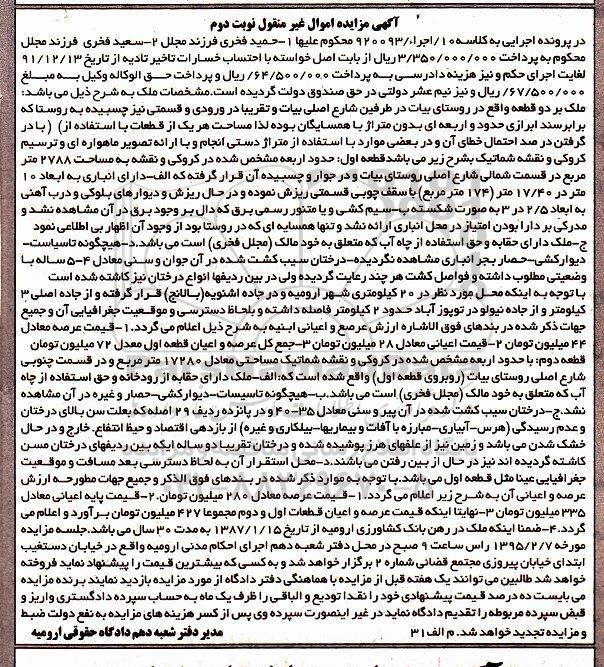 آگهی مزایده اموال غیر منقول نوبت دوم
در پرونده اجرایی به کلاسه ۱۰/اجرا/۹۲۰۰۹۳ محکوم علیها ۱-حمید فخری فرزند مجلل ۲-سعید فخری فرزند مجلل
محکوم به پرداخت ۳/۳۵۰/۰۰۰/۰۰۰ ریال از بابت اصل خواسته با احتساب خسارات تاخیر تادیه از تاریخ ۹۱/۱۲/۱۳
لغایت اجرای حکم و نیز هزینه دادرسی به پرداخت ۶۴/۵۰۰/۰۰۰ ریال و پرداخت حق الوکاله وکیل به مبلغ
۶۷/۵۰۰/۰۰۰ ریال و نیز نیم عشر دولتی در حق صندوق دولت گردیده است.مشخصات ملک به شرح ذیل می باشد:
ملک بر دو قطعه واقع در روستای بیات در طرفین شارع اصلی بیات و تقریبا در ورودی و قسمتی نیز چسبیده به روستا که
برابرسند ابرازی حدود و اربعه ای بدون متراژ با همسایگان بوده لذا مساحت هر یک از قطعات با استفاده از) ( با در
گرفتن در صد احتمال خطای آن و در بعضی موارد با استفاده از متراژ دستی انجام و با ارائه تصویر ماهواره ای و ترسیم
کروکی و نقشه شماتیک بشرح زیر می باشدقطعه اول: حدود اربعه مشخص شده در کروکی و نقشه به مساحت ۲۷۸۸ متر
مربع در قسمت شمالی شارع اصلی روستای بیات و در جوار و چسبیده آن قرار گرفته که الف-دارای انباری به ابعاد ۱۰
متر در ۱۷/۴۰ متر (۱۷۴ متر مربع) با سقف چوبی قسمتی ریزش نموده و در حال ریزش و دیوارهای بلوکی و درب آهنی
به ابعاد ۲/۵ در ۳ به صورت شکسته ب-سیم کشی و یا منتور رسمی برق که دال بر وجود برق در آن مشاهده نشد و
مدرکی بر دارا بودن امتیاز در محل انباری ارائه نشد و تنها همسایه ای که در روستا بود از وجود آن اظهار بی اطلاعی نمود
ج-ملک دارای حقابه و حق استفاده از چاه آب که متعلق به خود مالک (مجلل فخری) است می باشد.د-هیچگونه تاسیاست-
دیوارکشی-حصار بجز انباری مشاهده نگردیده-درختان سیب کشت شده در آن جوان و سنی معادل ۴-۵ ساله با
وضعیتی مطلوب داشته و فواصل کشت هر چند رعایت گردیده ولی در بین ردیفها انواع درختان نیز کاشته شده است
با توجه به اینکه محل مورد نظر در ۲۰ کیلومتری شهر ارومیه و در جاده اشنویه(بالانج) قرار گرفته و از جاده اصلی ۳
کیلومتر و از جاده نیولو در توپوز آباد حدود ۲ کیلومتر فاصله داشته و بلحاظ دسترسی و موقعیت جغرافیایی آن و جمیع
جهات ذکر شده در بندهای فوق الاشاره ارزش عرصه و اعیانی ابنیه به شرح ذیل اعلام می گردد.۱-قیمت عرصه معادل
۴۴ میلیون تومان ۲-قیمت اعیانی معادل ۲۸ میلیون تومان ۳-جمع کل عرصه و اعیان قطعه اول معدل ۷۲ میلیون تومان
قطعه دوم: با حدود اربعه مشخص شده در کروکی و نقشه شماتیک مساحتی معادل ۱۷۲۸۰ متر مربع و در قسمت چنوبی
شارع اصلی روستای بیات (روبروی قطعه اول) واقع شده است که:الف-ملک دارای حقابه از رودخانه و حق استفاده از چاه
آب که متعلق به خود مالک (مجلل فخری) است می باشد.ب-هیچگونه تاسیسات-دیوارکشی-حصار و غیره در آن مشاهده
نشد.ج-درختان سیب کشت شده در آن پیر و سنی معادل ۳۵-۴۰ و در پانزده ردیف ۲۹ اصله که بعلت سن بالای درختان
و عدم رسیدگی (هرس-آبیاری-مبارزه با آفات و بیماریها-بیلکاری و غیره) از بازدهی اقتصاد و حیظ انتفاع.خارج و در حال
خشک شدن می باشد و زمین نیز از علفهای هرز پوشیده شده و درختان تقریبا دو ساله ایکه بین ردیفهای درختان مسن
کاشته گردیده اند نیز در حال از بین رفتن می باشند.د-محل استقرار آن به لحاظ دسترسی بعد مسافت و موقعیت
جغرافیایی عینا مثل قطعه اول می باشد.با توجه به موارد ذکر شده در بندهای فوق الذکر و جمیع جهات مطورحه ارزش
عرصه و اعیانی آن به شرح زیر اعلام می گردد.۱-قیمت عرصه معادل ۲۸۰ میلیون تومان.۲-قیمت پایه اعیانی معادل
۳۳۵ میلیون تومان ۳-نهایتا اینکه قیمت عرصه و اعیان قطعات اول و دوم مجموعا ۴۲۷ میلیون تومان برآورد و اعلام می
گردد.۴-ضمنا اینکه ملک در رهن بانک کشاورزی ارومیه از تاریخ ۱۳۸۷/۱/۱۵ به مدت ۳۰ سال می باشد.جلسه مزایده
مورخه ۱۳۹۵/۲/۷ راس ساعت ۹ صبح در محل دفتر شعبه دهم اجرای احکام مدنی ارومیه واقع در خیابان دستغیب
ابتدای خیابان پیروزی مجتمع قضائی شماره ۲ برگزار خواهد شد و به کسی که بیشترین قیمت را پیشنهاد نماید فروخته
خواهد شد طالبین می توانند یک هفته قبل از مزایده با هماهنگی دفتر دادگاه از مورد مزایده بازدید نمایند برنده مزایده
می بایست ده درصد قیمت پیشنهادی خود را نقدا تودیع و الباقی را ظرف یک ماه به حساب سپرده دادگستری واریز و
قبض سپرده مربوطه را تقدیم دادگاه نماید در غیر اینصورت سپرده وی پس از کسر هزینه های مزایده به نفع دولت ضبط
و مزایده تجدید خواهد شد. م الف ۳۱
مدیر دفتر شعبه دهم دادگاه حقوقی ارومیه